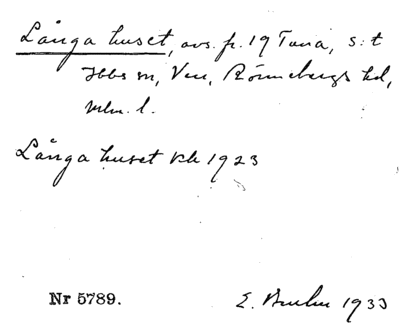 Långa huset, avs. fr. 19 Tuna, s:t
Ibbs sn, Ven, Rönnebergs hd,
Mlm. l.
Långa huset kb 1923
Nr 5789.
E. 1933